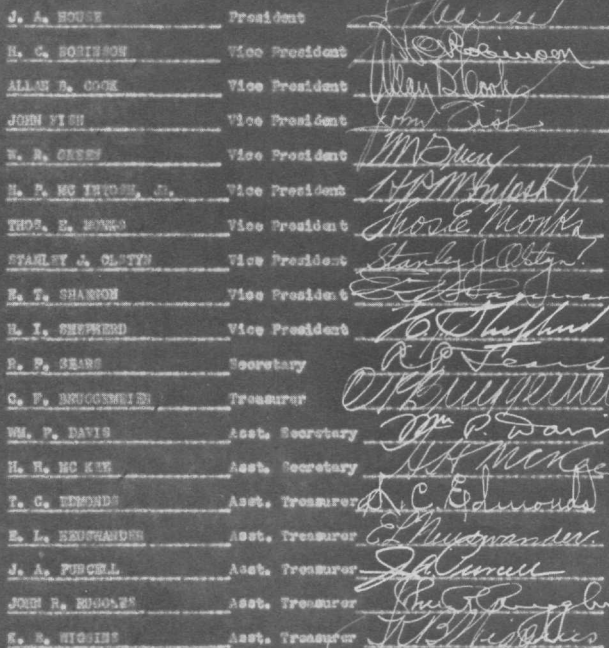 J. A. HOUSE President
H. C. ROBINSON Vice President H C Robinson
ALLAN B. COOK Vice President Allan B Cook
JOHN FISH Vice President John Fish
GREEN Vice President
H. P. MC INTOSH, JR. Vice President H P McIntosh Jr
THOS. E. MONKS Vice President Thos E Monks
STANLEY J. OLSTYN Vice President Stanley J Olstyn
E. T. SHANNON Vice President
H. I. SHEPHERD Vice President Shepherd
R. P. SEARS Secretary R P Sears
C. F. BRUGGEMEIER Treasurer
WM. P. DAVIS Asst. Secretary Wm P. Davis
H. H. MC KEE Asst. Secretary H H McKee
T. C. EDMONDS Asst. Treasurer C. Edmonds
E. L. NEUSWANDER Asst. Treasurer E L Neuswander
J. A. PURCELL Asst. Treasurer J A Purcell
JOHN R. RUGGLES Asst. Treasurer
K. B. WIGGINS Asst. Treasurer K B Wiggins